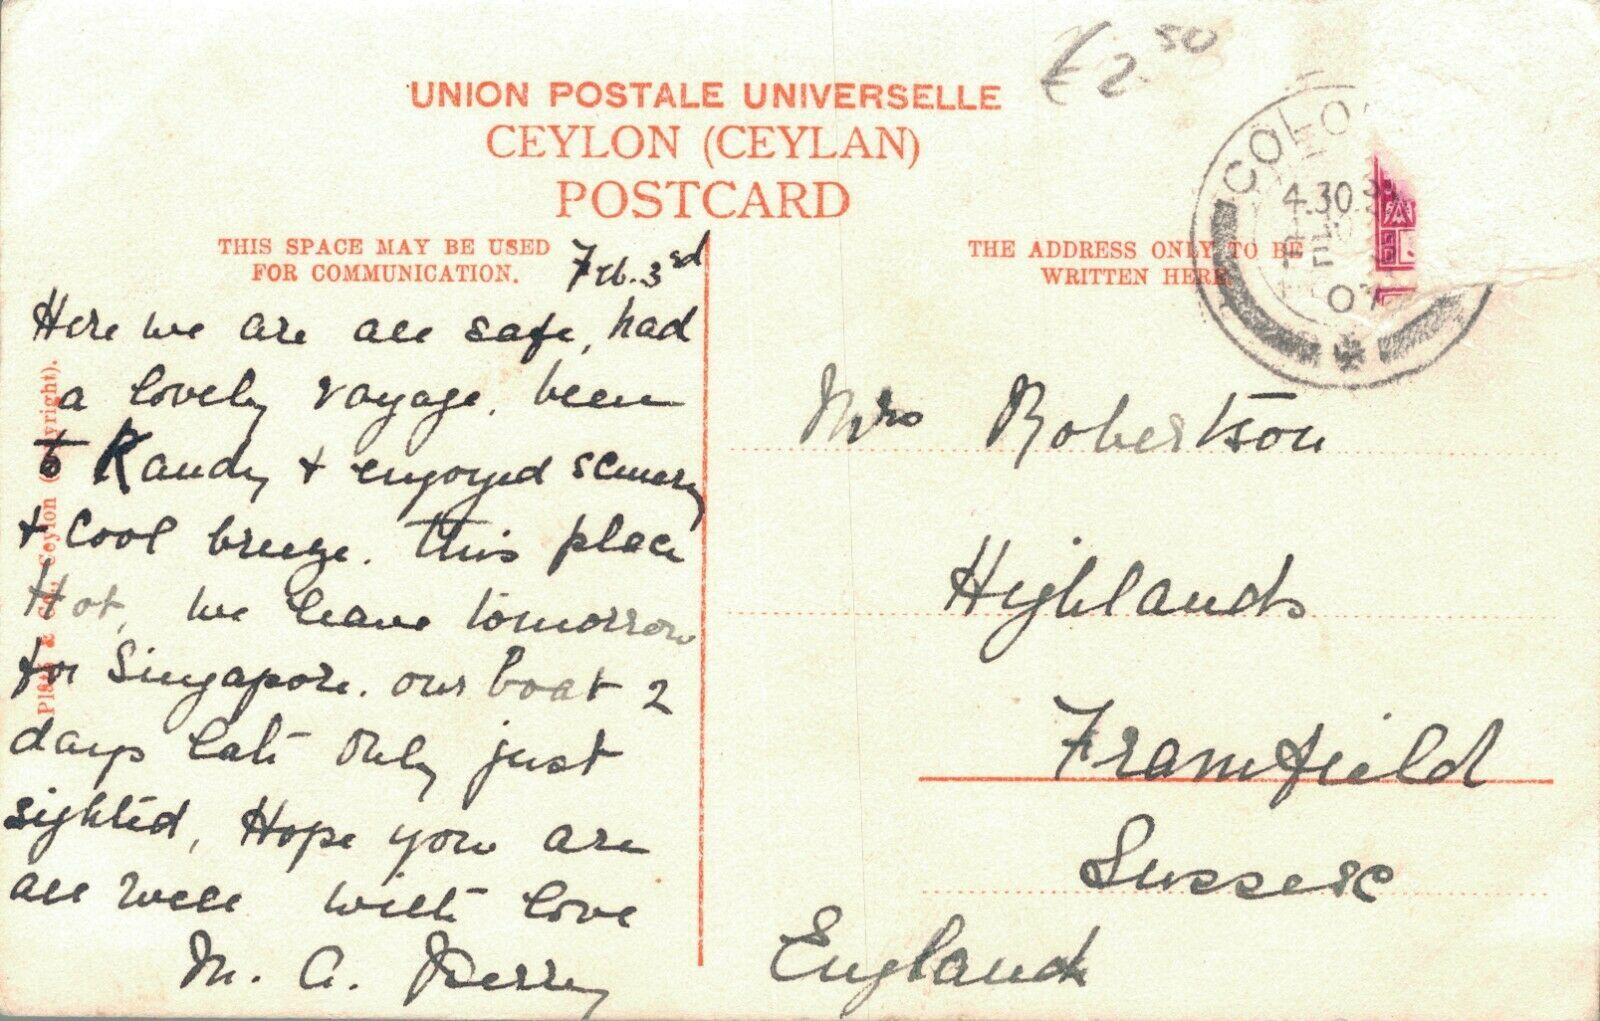 £2.50
UNION POSTALE UNIVERSELLE
CEYLON (CEYLAN)
POSTCARD
THIS SPACE MAY BE USED
FOR COMMUNICATION.
THE ADDRESS ONLY TO BE
WRITTEN HERE.
COLO
4.30
FE
07
Feb. 3rd
Here we are all safe, had
a lovely voyage, been
to Kandy & enjoyed scenery
& cool breeze. This place
Hot, we leave tomorrow
for Singapore. our boat 2
days late only just
sighted, Hope you are
all well with love
M. A. Berry
Mrs Robertson
Highlands
Framfield
Sussex
England
Plâté & Co., Ceylon (Copyright).